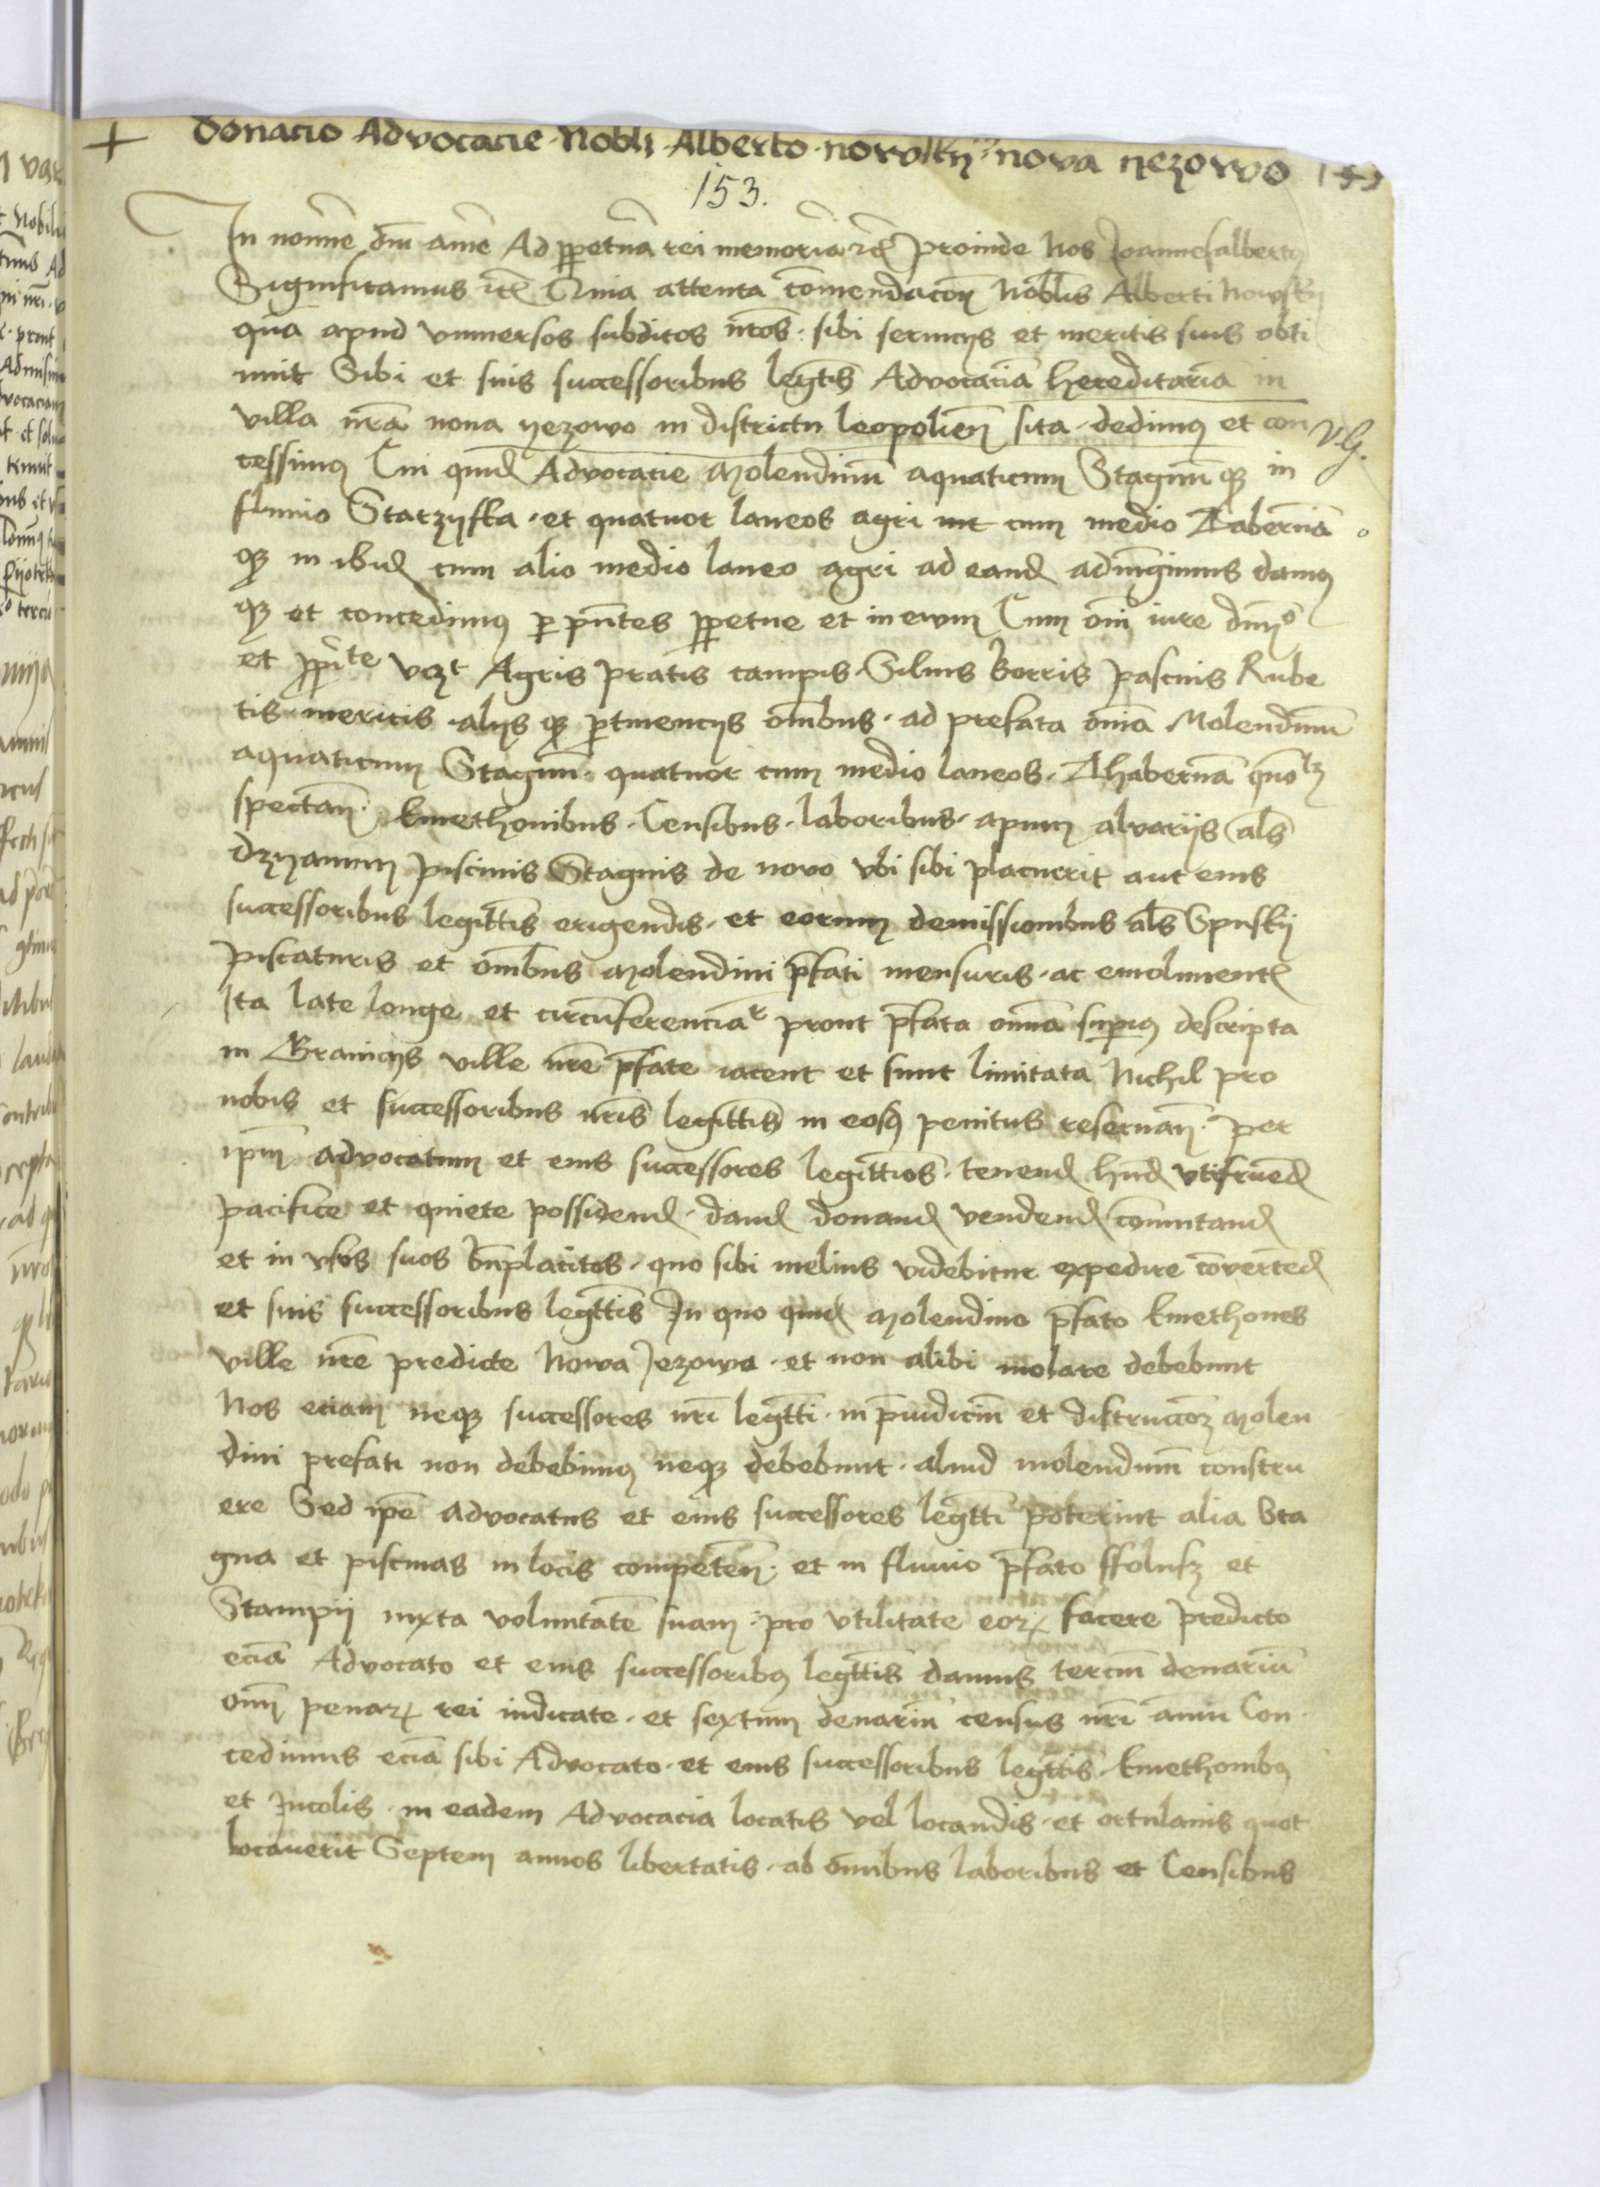 Donacio Advocacie Nobli Alberto nowskij nova yezowo 153
153.
In nomine dni ame Ad ppetuā rei memoriā etc Proinde Nos Joannesalbertus
Significamus etc Quia attenta cōmendacōn Noblis Alberti nowskij
quā apud vniuersos subditos nros sibi seruicijs et meritis suis obti
nuit Sibi et suis successoribus legttis Advocatiā hereditariā in
villa nrā noua yezowo in districtu leopolien sita dedimus et con
cessimus Cui quid Advocacie Molendinū aquaticum Stagnūq in
fluuio Starzyska et quatuor laneos agri nt cum medio Tabernā
q in ibid cum alio medio laneo agri ad eand adiūgimus damus
q et concedimus p pntes ppetue et in ewum Cum oni iure dnio
et pprite vczt Agris Pratis campis Siluis borris pascuis Rube
tis mericis alijs q ptinencijs omnbus ad prefata omā Molendinū
aquaticum Stagnū quatuor cum medio laneos Thabernā quolz
spectan kmethonibus Censibus laboribus apum alvarijs als
dzyanmy piscinis Stagnis de novo vbi sibi placuerit aut eius
successoribus legittis erigendis et eorum demissionibus als Spustij
piscaturis et omnbus Molendini pfati mensuris ac emoliment
Ita late longe et circūferenciar prout pfata omnā superius descripta
in Granicijs ville nre pfate iacent et sunt limitata Nichil pro
nobis et successoribus nris legittis in eosq penitus reseruan Per
ipm advocatum et eius successores legittios tenend hnd vtifruend
pacifice et quiete possidend dand donand vendend cōmutand
et in vsus suos bnplacitos quo sibi melius videbitur expedire cōvertēd
et suis successoribus legttis In quo quid Molendino pfato kmethones
ville nre predicte Nowa Jezowa et non alibi molare debebunt
Nos eciam neq successores nri legtti in piudiciū et distruccōz molen
dini prefati non debebimus neq debebunt aliud molendinū constru
ere Sed ipe advocatus et eius successores legtti poterint alia Sta
gna et piscinas in locis competen et in fluuio pfato ffolusz et
Stampij iuxta voluntatē suam pro vtilitate eorz facere Predicto
eciā Advocato et eius successoribus legttis damus terciū denariū
omi penarz rei iudicate et sextum denariū census nri annui Con
cedimus eciā sibi Advocato et eius successoribus legttis kmethonibus
et Incolis in eadem Advocacia locatis vel locandis et ortulanis quot
locauerit Septem annos libertatis ab omibus laboribus et Censibus